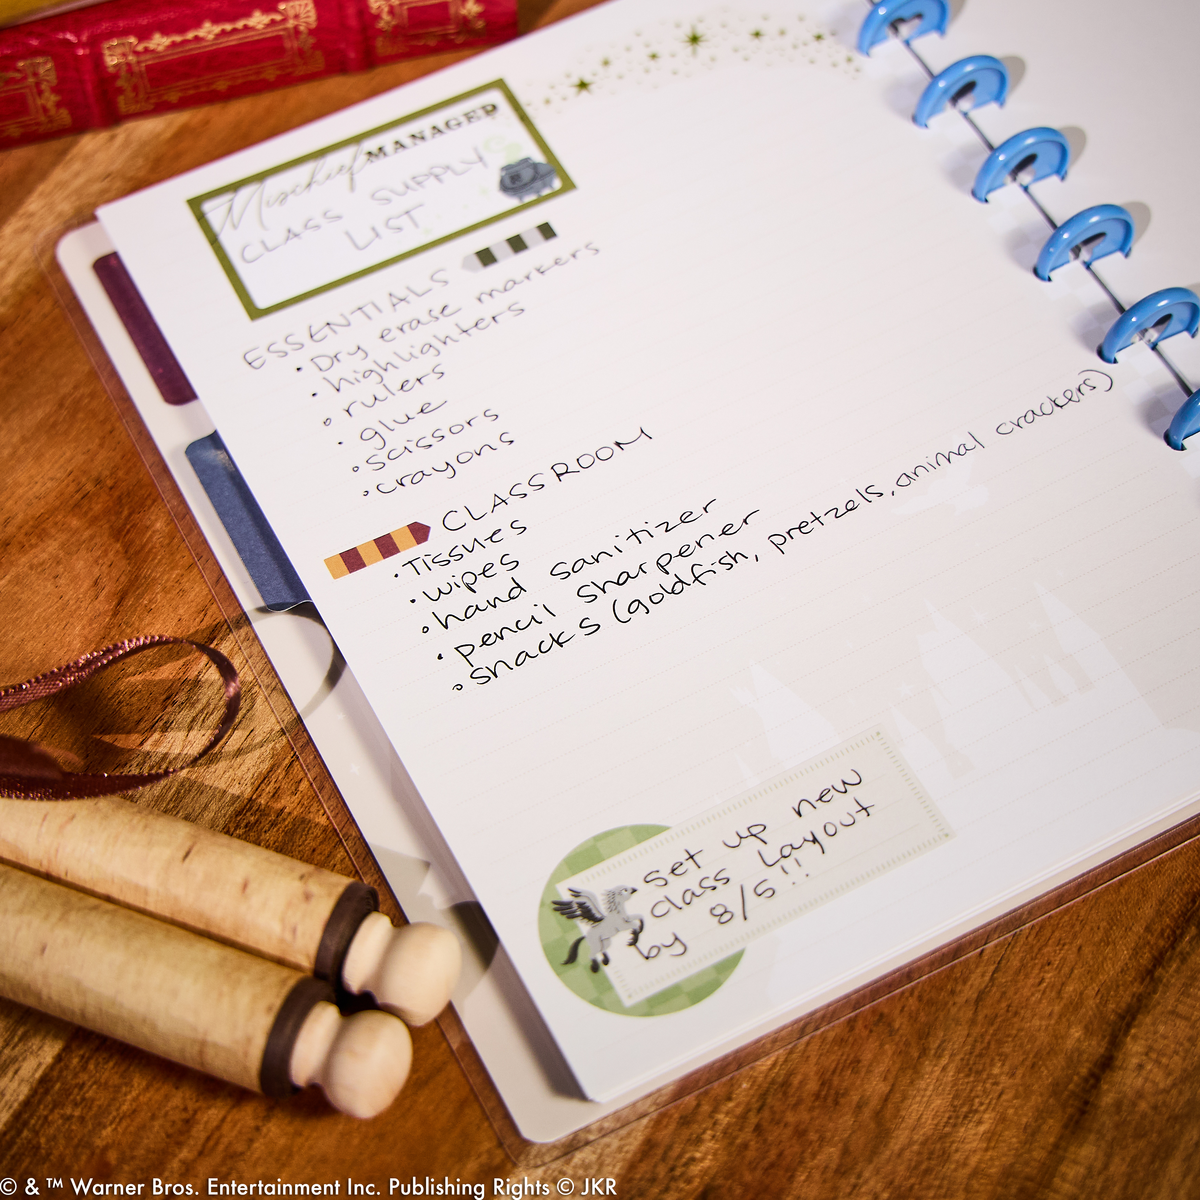 Mischief MANAGED
CLASS SUPPLY
LIST
ESSENTIALS
• Dry erase markers
• highlighters
• rulers
• glue
• scissors
• crayons
CLASSROOM
• Tissues
• wipes
• hand sanitizer
• pencil sharpener
• snacks (goldfish, pretzels, animal crackers)
set up new
class layout
by 8/5!!
© & ™ Warner Bros. Entertainment Inc. Publishing Rights © JKR